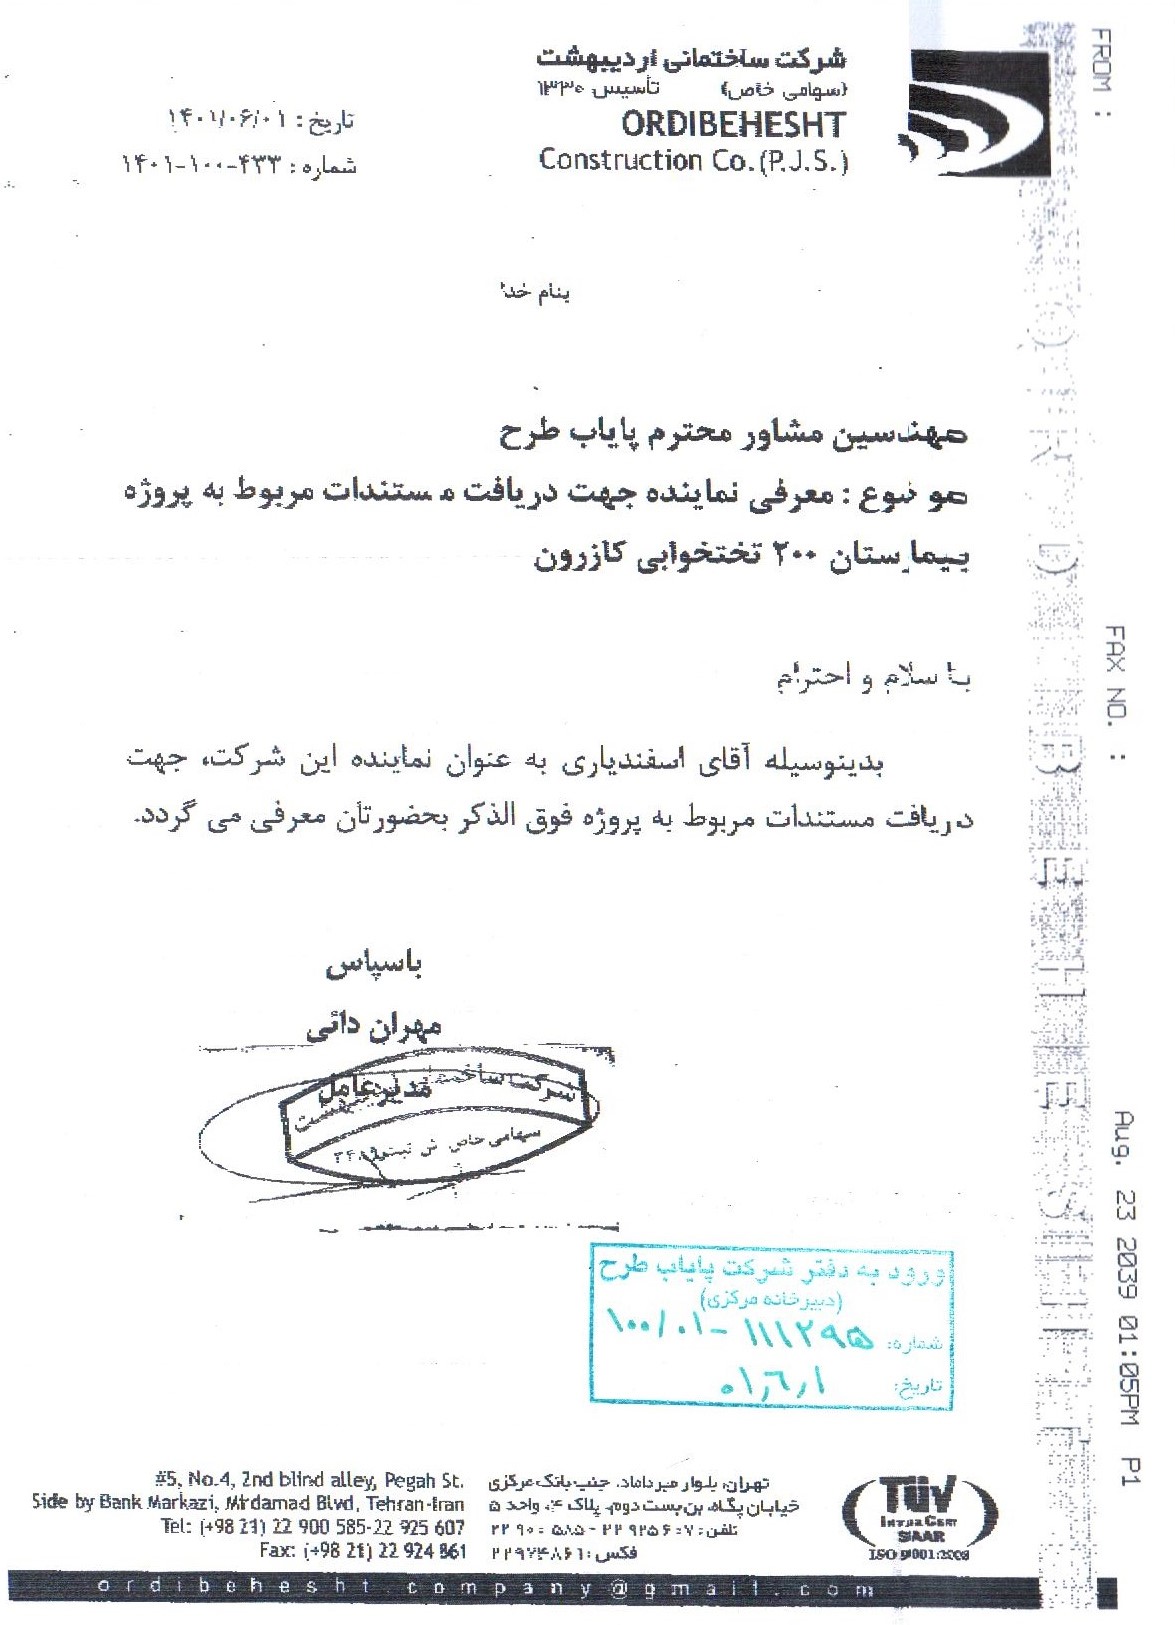 شرکت ساختمانی اردیبهشت
(سهامی خاص) تأسیس ۱۳۳۰
ORDIBEHESHT
Construction Co. (P.J.S.)
تاریخ : ۱۴۰۱/۰۶/۰۱
شماره : ۴۳۳-۱۰۰-۱۴۰۱
بنام خدا
مهندسین مشاور محترم پایاب طرح
موضوع : معرفی نماینده جهت دریافت مستندات مربوط به پروژه
بیمارستان ۲۰۰ تختخوابی کازرون
با سلام و احترام
بدینوسیله آقای اسفندیاری به عنوان نماینده این شرکت، جهت
دریافت مستندات مربوط به پروژه فوق الذکر بحضورتان معرفی می گردد.
باسپاس
مهران دائی
مدیرعامل
شرکت ساختمانی اردیبهشت
سهامی خاص ش ثبت
ورود به دفتر شرکت پایاب طرح
(دبیرخانه مرکزی)
شماره: ۱۰۰/۰۱-۱۱۱۲۹۵
تاریخ: ۰۱,۶,۱
تهران، بلوار میرداماد، جنب بانک مرکزی
خیابان پگاه، بن بست دوم، پلاک ۴، واحد ۵
تلفن : ۲۲۹۲۵۶۰۷ - ۲۲۹۰۰۵۸۵
فکس : ۲۲۹۲۴۸۶۱
#5, No.4, 2nd blind alley, Pegah St.
Side by Bank Markazi, Mirdamad Blvd, Tehran-Iran
Tel: (+98 21) 22 900 585-22 925 607
Fax: (+98 21) 22 924 861
TÜV
INTERCERT
SAAR
ISO 9001:2008
ordibehesht.company@gmail.com
FROM :
FAX NO. :
Aug. 23 2039 01:05PM P1